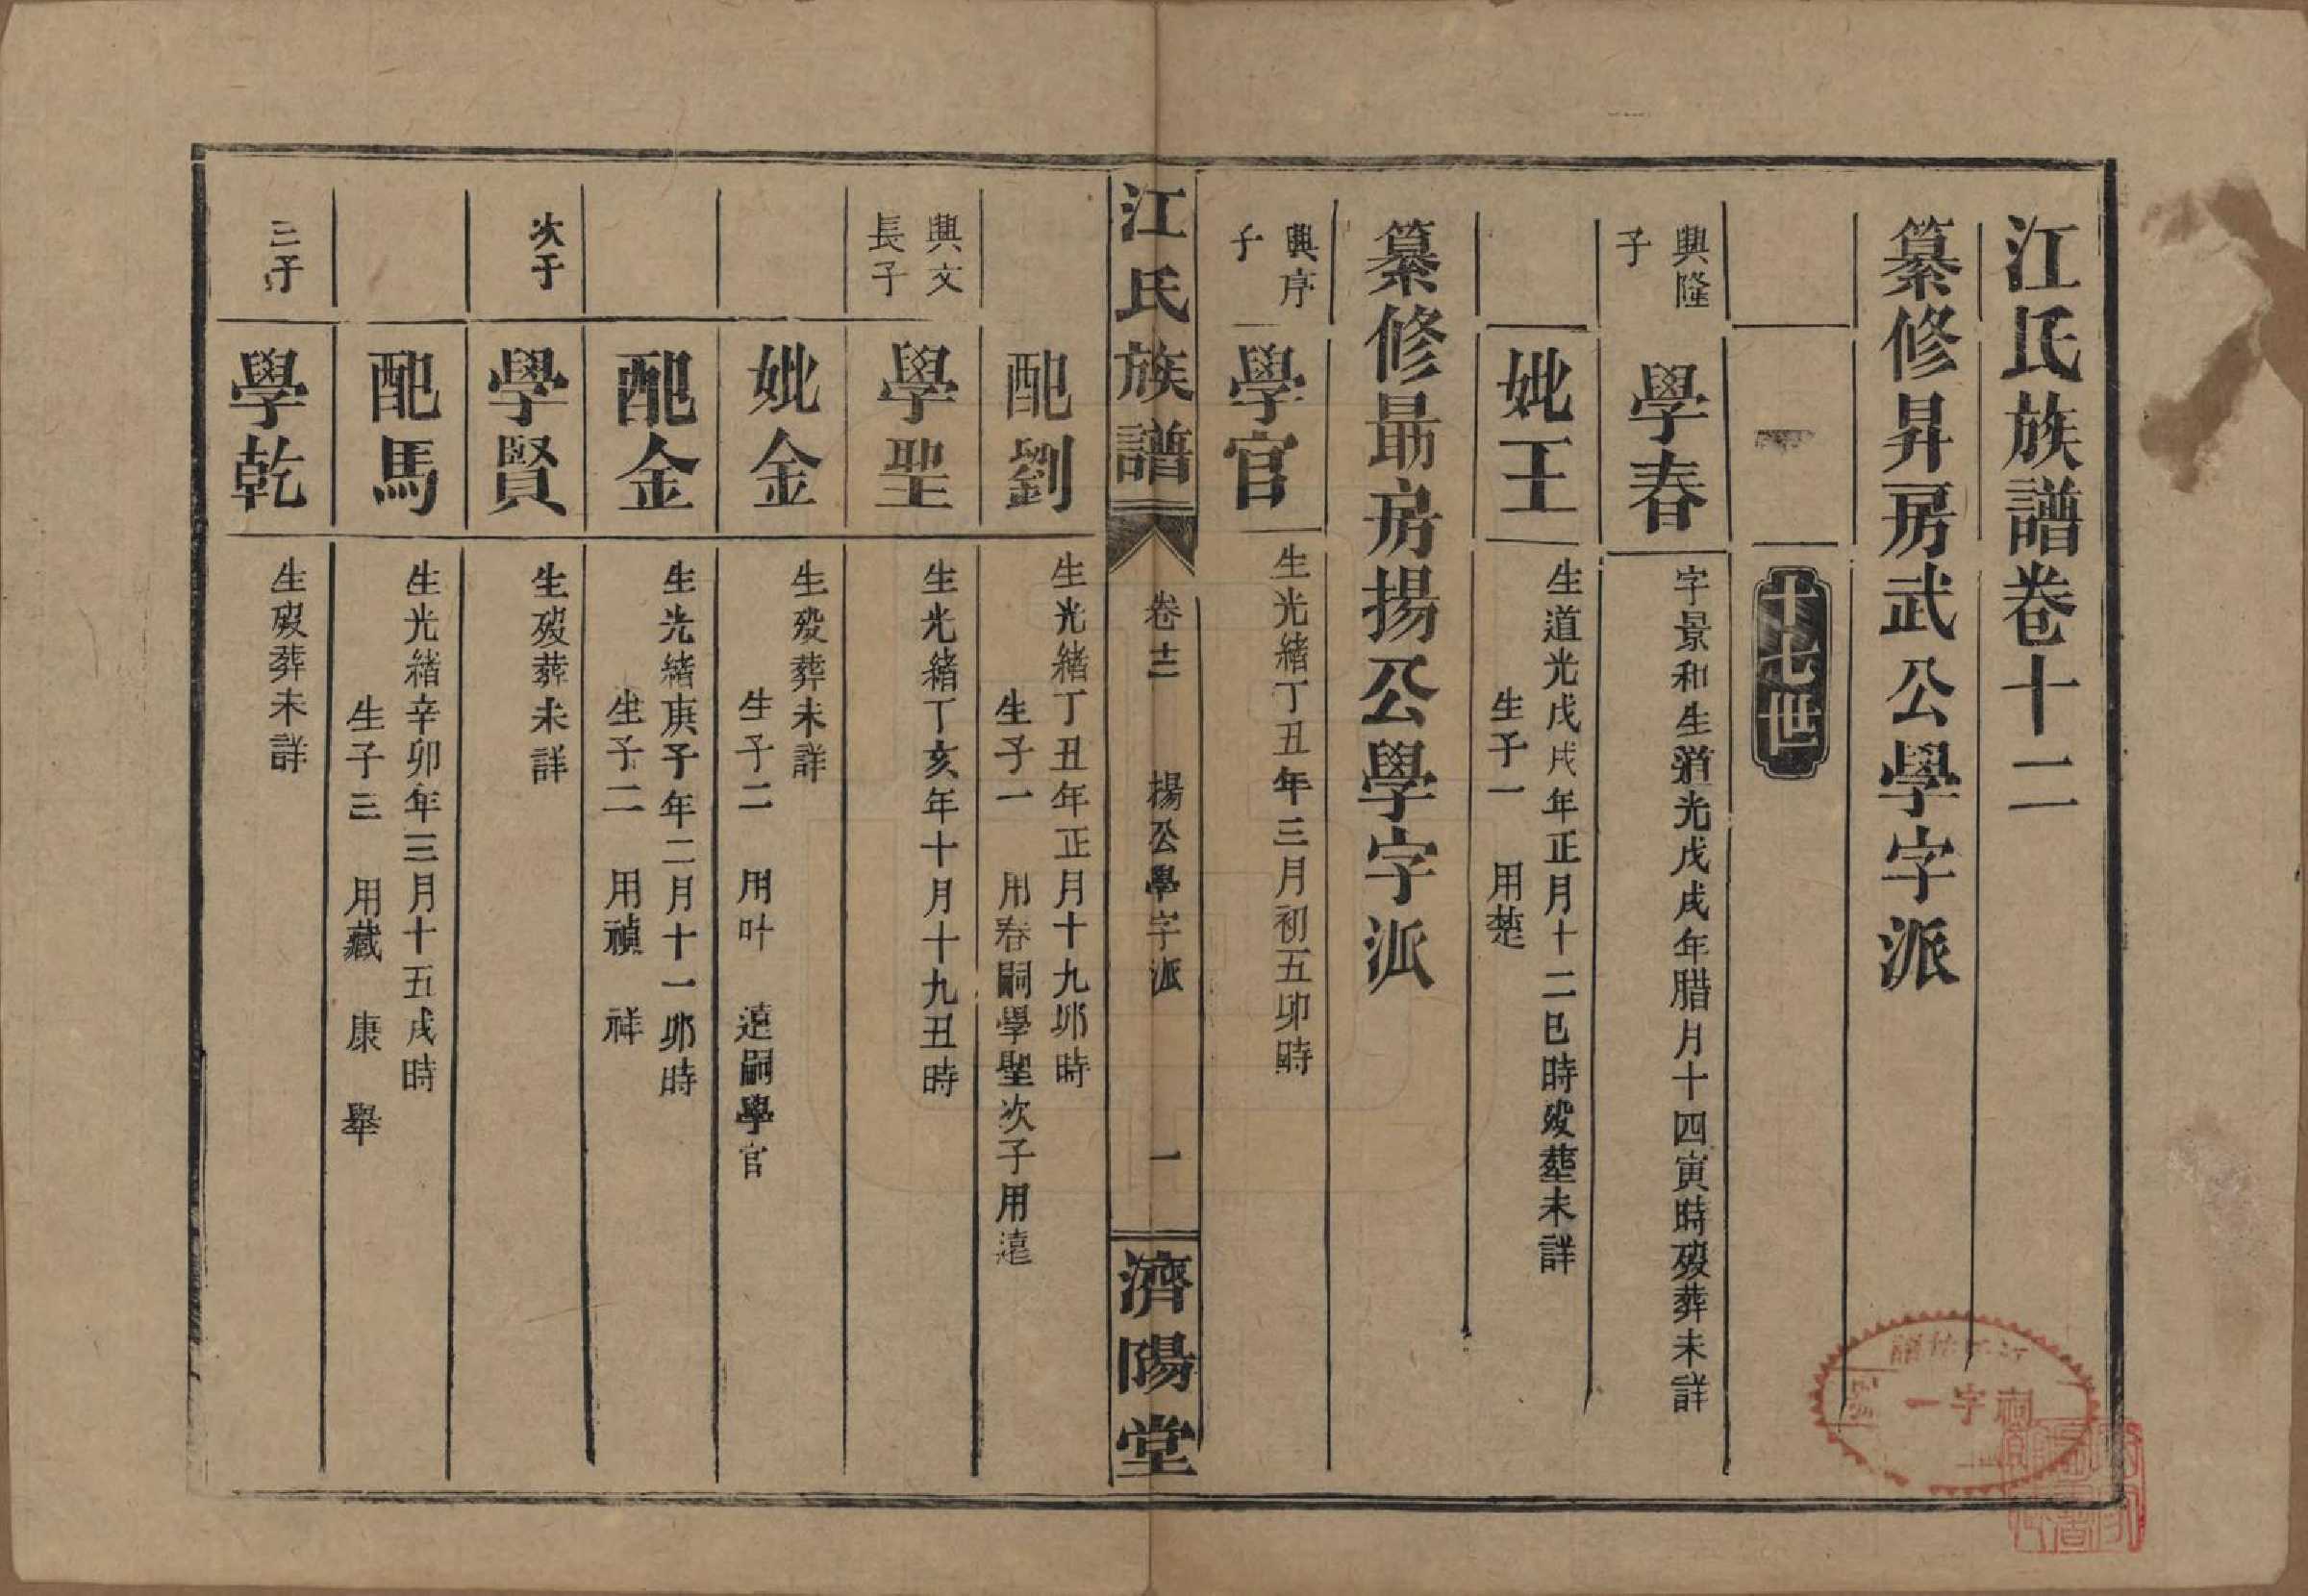 江氏族譜卷十二
纂修昇房武公學字派
十七世
興隆
子
學春
字景和生道光戊戌年腊月十四寅時歿葬未詳
妣王
生道光戊戌年正月十二巳時歿塟未詳
生子一　用楚
纂修最房揚公學字派
興序
子
學官
生光緒丁丑年三月初五卯時
江氏族譜
卷十二
揚公學字派
一
濟陽堂
配劉
生光緒丁丑年正月十九卯時
生子一　用春嗣學聖次子用遠
興文
長子
學聖
生光緒丁亥年十月十九丑時
妣金
生歿葬未詳
生子二　用叶　遠嗣學官
配金
生光緒庚子年二月十一卯時
生子二　用禎　祥
次子
學賢
生歿葬未詳
配馬
生光緒辛卯年三月十五戌時
生子三　用藏　康　舉
三子
學乾
生歿葬未詳
祠字一